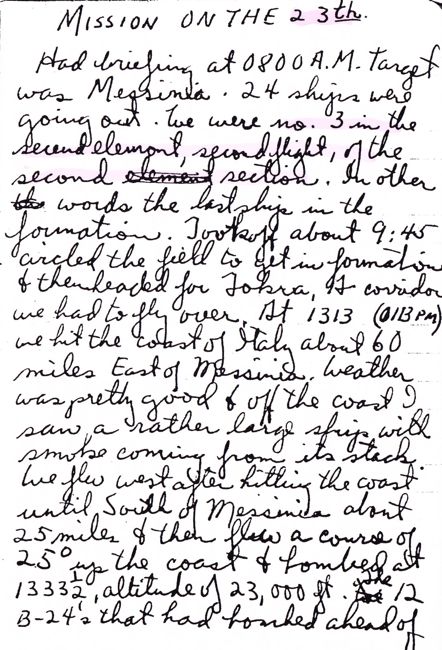 MISSION ON THE 23th.
Had briefing at 0800 A.M. Target
was Messinia. 24 ships were
going out. We were no. 3 in the
second element, second flight, of the
second element section. In other
words the last ship in the
formation. Took off about 9:45
circled the field to get in formation
& then headed for Tokra, A corridor
we had to fly over. At 1313 (0113 PM)
we hit the coast of Italy about 60
miles East of Messinia. Weather
was pretty good & off the coast I
saw a rather large ship with
smoke coming from its stack.
We flew west after hitting the coast
until South of Messinia about
25 miles & then flew a course of
25° up the coast & bombed at
1333½, altitude of 23,000 ft. The 12
B-24's that had bombed ahead of